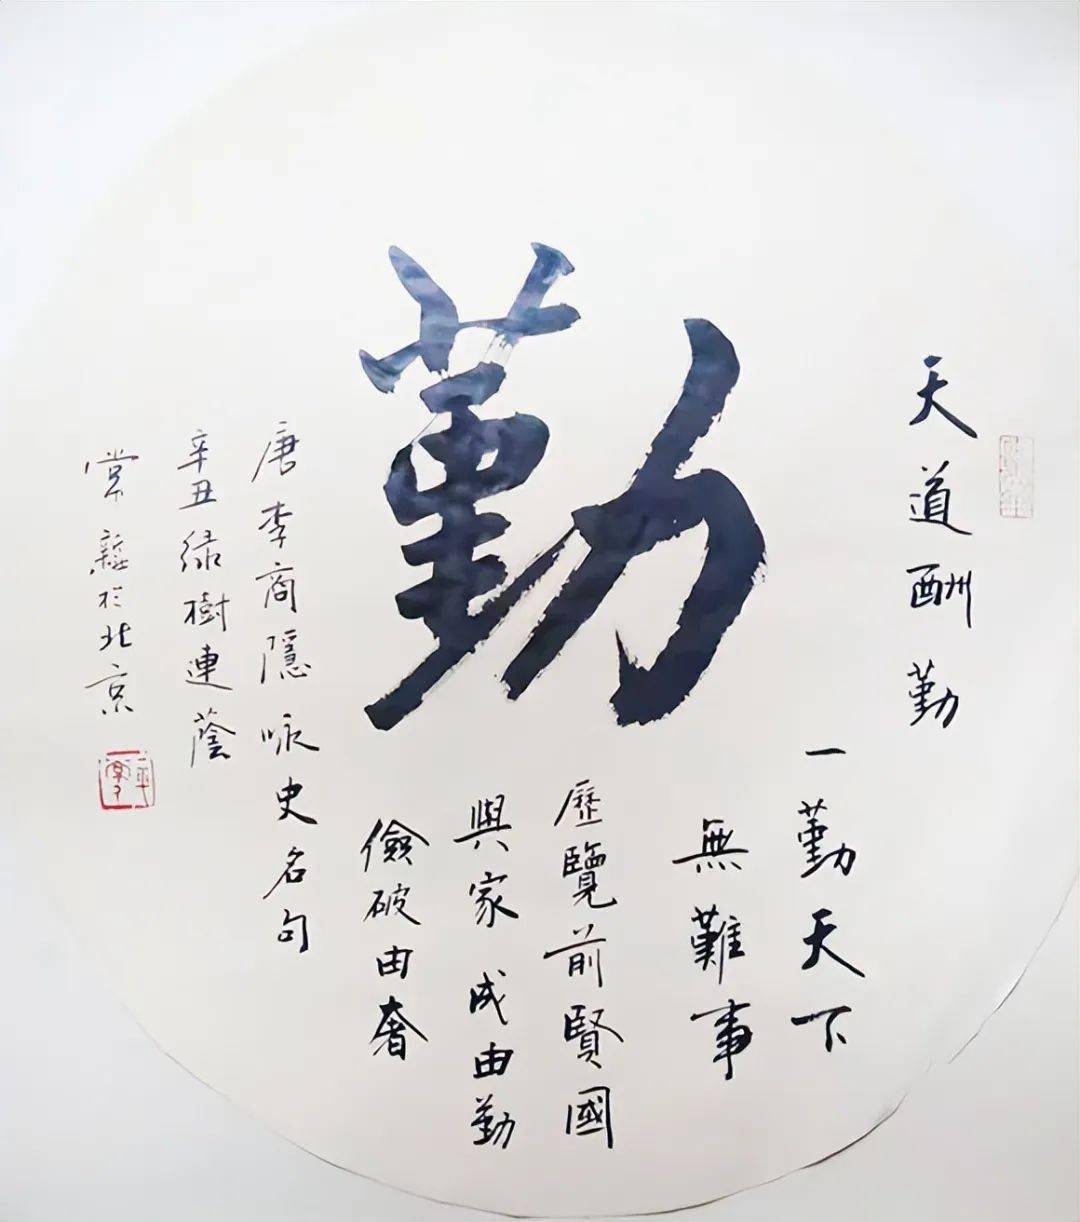 勤
天道酬勤
一勤天下
無難事
歷覽前賢國
與家成由勤
儉破由奢
唐李商隱咏史名句
辛丑緑樹連蔭
常於北京